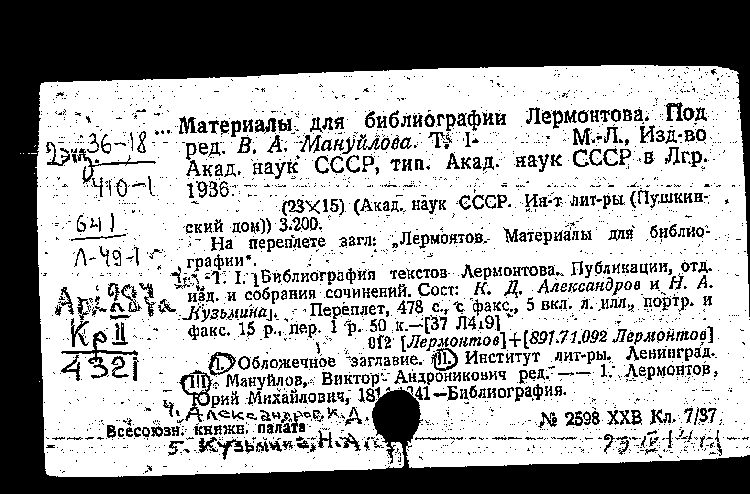 ...Материалы для библиографии Лермонтова. Под
2экз. 36-18
ред. В. А. Мануйлова. Т. 1. М.-Л., Изд-во
Акад. наук СССР, тип. Акад. наук СССР в Лгр.
410-1
1936.
(23×15) (Акад. наук СССР. Ин-т лит-ры (Пушкин-
641
ский дом)) 3.200.
На переплете загл: „Лермонтов. Материалы для библио-
Л-49-1
графии".
Т. I. [Библиография текстов Лермонтова. Публикации, отд.
изд. и собрания сочинений. Сост: К. Д. Александров и Н. А.
Кузьмина]. Переплет, 478 с., с факс., 5 вкл. л. илл., портр. и
Кр II
факс. 15 р., пер. 1 р. 50 к.—[37 Л419]
012 [Лермонтов]+[891.71.092 Лермонтов]
4321
(I.) Обложечное заглавие. (II.) Институт лит-ры. Ленинград.
(III.) Мануйлов, Виктор Андроникович ред. —— 1. Лермонтов,
Юрий Михайлович, 1814 41—Библиография.
4. Александров, К. Д.
Всесоюзн. книжн. палата
№ 2598 XXB Кл. 7/37
5. Кузьмина, Н. А.